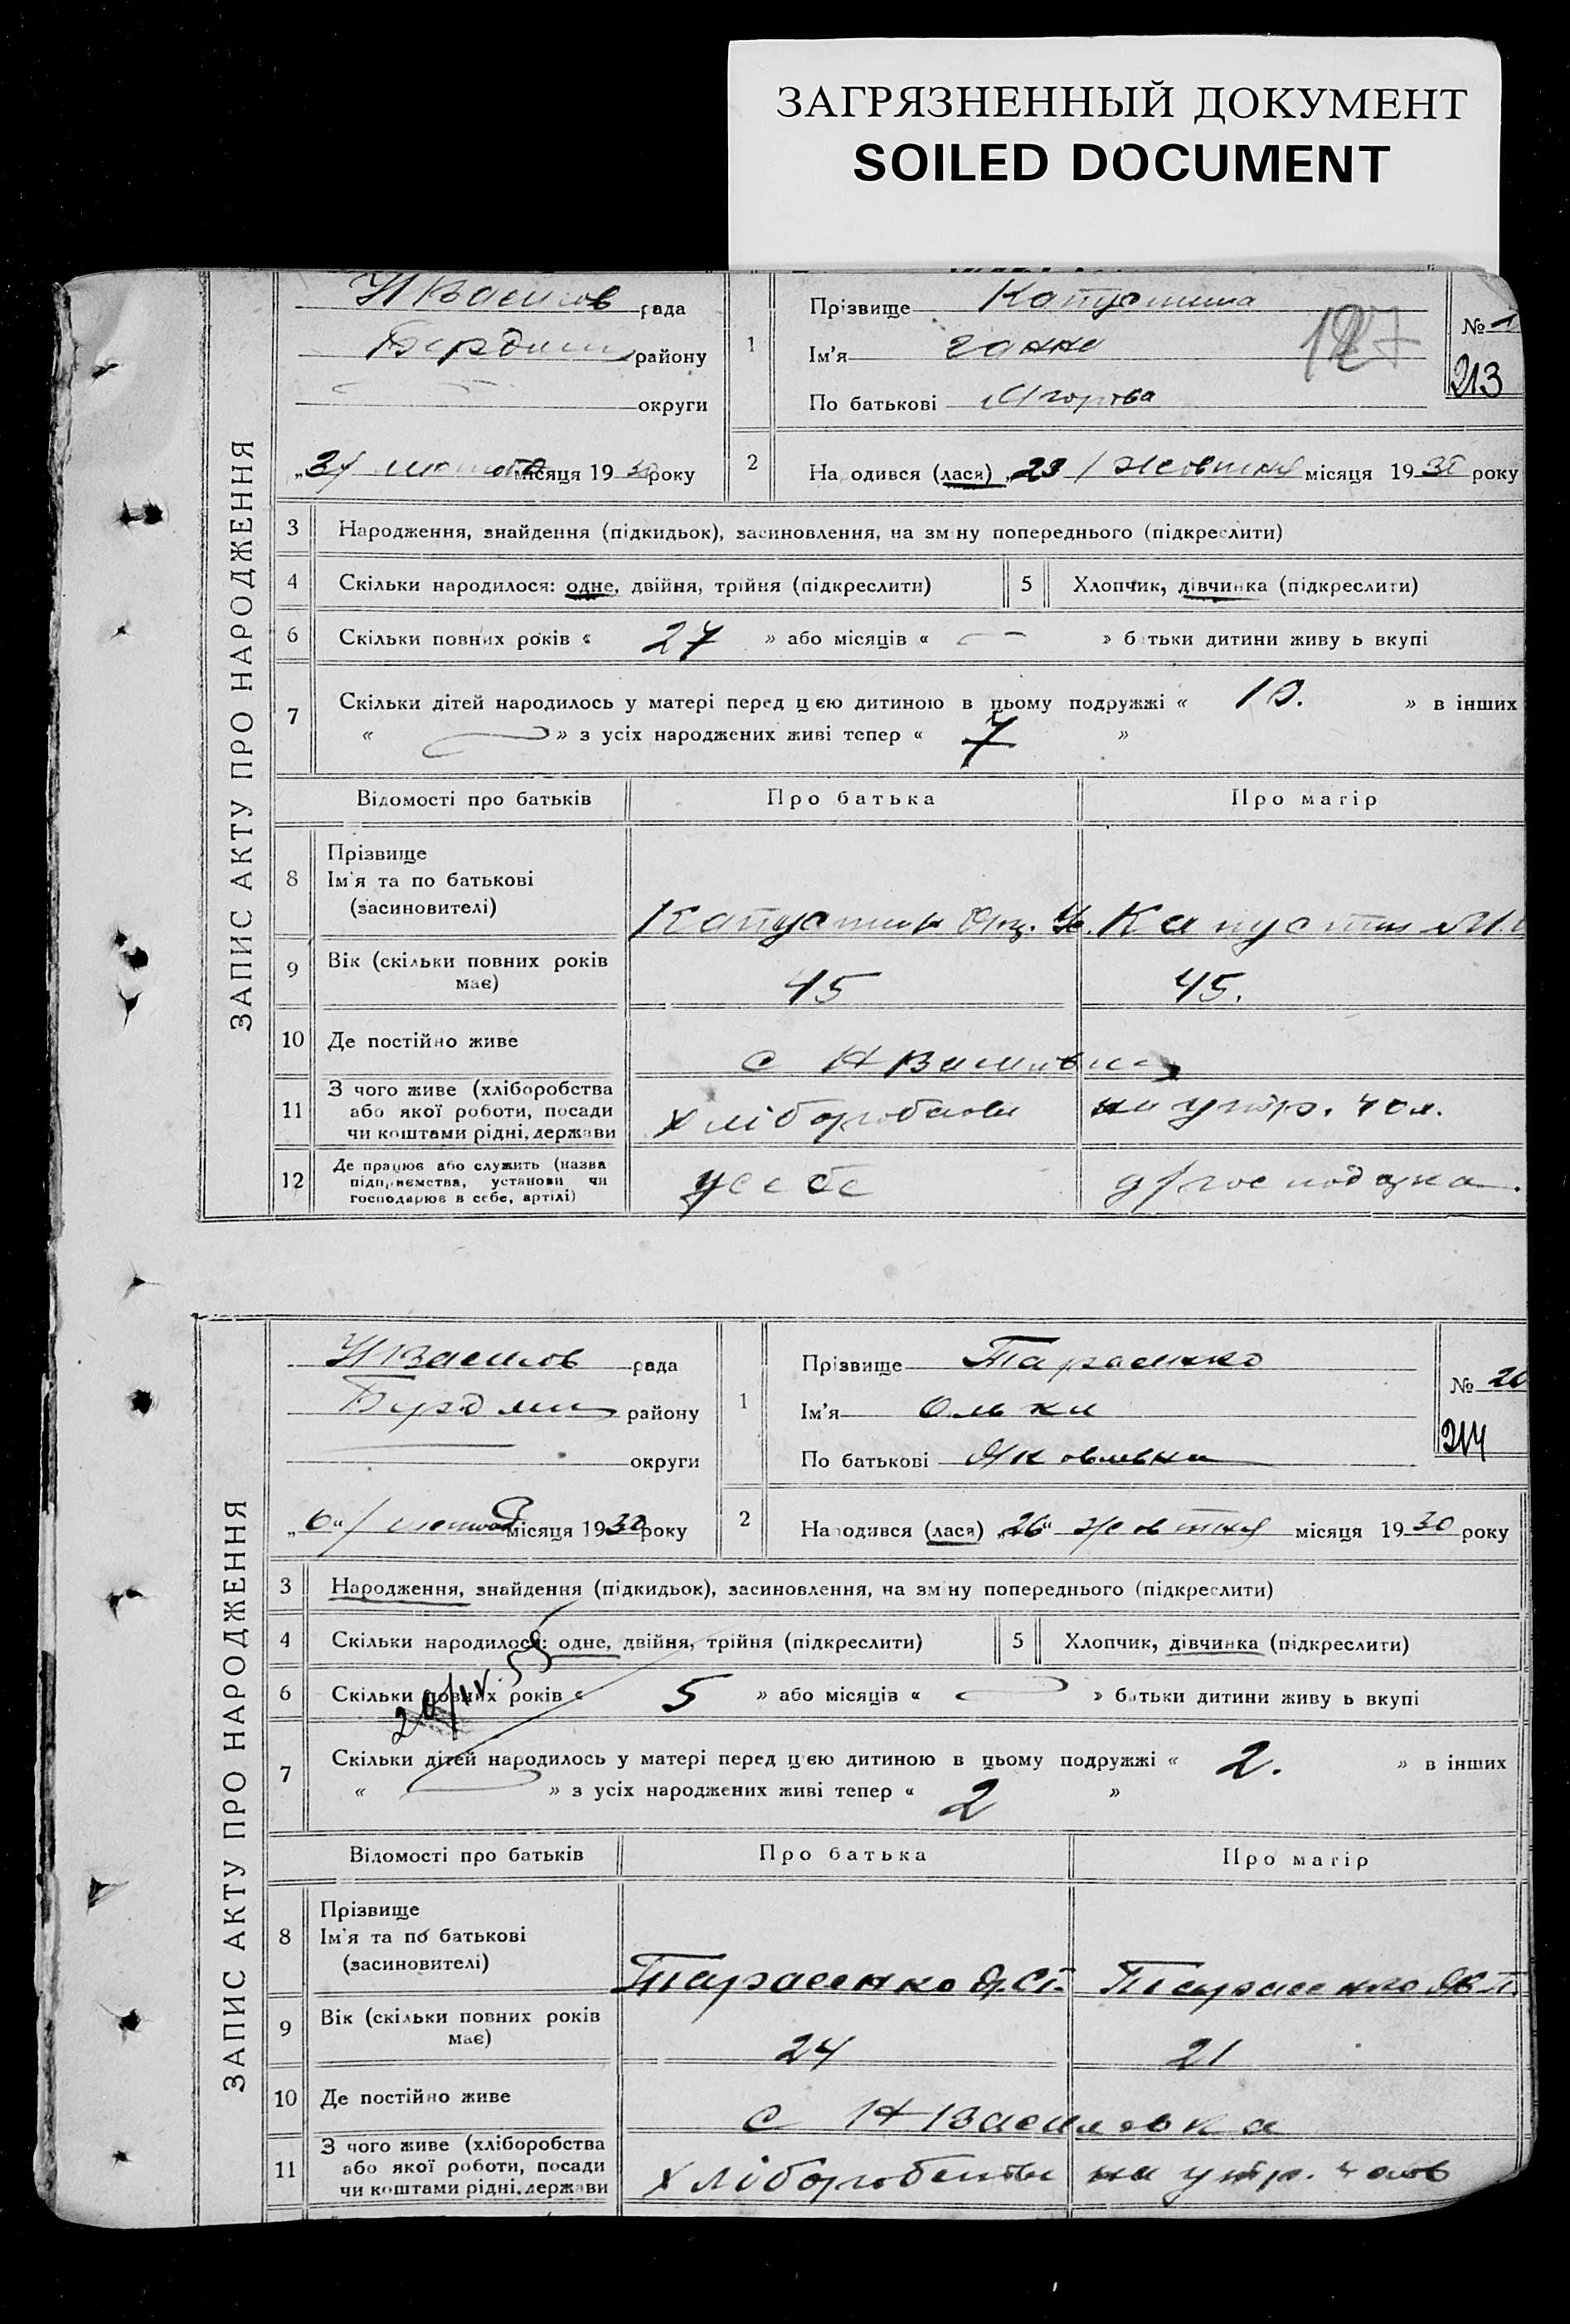 ЗАГРЯЗНЕННЫЙ ДОКУМЕНТ
SOILED DOCUMENT
ЗАПИС АКТУ ПРО НАРОДЖЕННЯ
Н Васил ов рада
району
округи
місяця 19 30 року
1
Прізвище Капустина
Ім'я Ганна
По батькові
127
№
213
2
На одився (лася) „23 / жовтня місяця 19 30 року
3 Народження, знайдення (підкидьок), засиновлення, на зм ну попереднього (підкреслити)
4 Скільки народилося: одне, двійня, трійня (підкреслити) 5 Хлопчик, дівчинка (підкреслити)
6 Скільки повних років « 27 » або місяців « — » б тьки дитини живу ь вкупі
7 Скільки дітей народилось у матері перед цією дитиною в цьому подружжі « 10. » в інших
« — » з усіх народжених живі тепер « 7 »
Відомості про батьків Про батька Про матір
8 Прізвище
Ім'я та по батькові
(засиновителі)
Капустин Капустин
9 Вік (скільки повних років
має)
45 45.
10 Де постійно живе
с Н Василівка
11 З чого живе (хліборобства
або якої роботи, посади
чи коштами рідні, держави
хліборобство на утр. чол.
12 Де працює або служить (назва
підприємства, установи чи
господарює в себе, артілі)
у себе д/господарка.
ЗАПИС АКТУ ПРО НАРОДЖЕННЯ
Н Васил ов рада
району
округи
„6“/ місяця 19 30 року
1
Прізвище Тарасенко
Ім'я Ольга
По батькові Яковлевна
№ 20
214
2
Народився (лася) „26“ жовтня місяця 19 30 року
3 Народження, знайдення (підкидьок), засиновлення, на зм ну попереднього (підкреслити)
4 Скільки народилося: одне, двійня, трійня (підкреслити) 5 Хлопчик, дівчинка (підкреслити)
20/IV 55
6 Скільки повних років « 5 » або місяців « — » батьки дитини живу ь вкупі
7 Скільки дітей народилось у матері перед цією дитиною в цьому подружжі « 2. » в інших
« — » з усіх народжених живі тепер « 2 »
Відомості про батьків Про батька Про матір
8 Прізвище
Ім'я та по батькові
(засиновителі)
Тарасенко Я. Ст. Тарасенко
9 Вік (скільки повних років
має)
24 21
10 Де постійно живе
с Н Василовка
11 З чого живе (хліборобства
або якої роботи, посади
чи коштами рідні, держави
хліборобство на утр. чолов